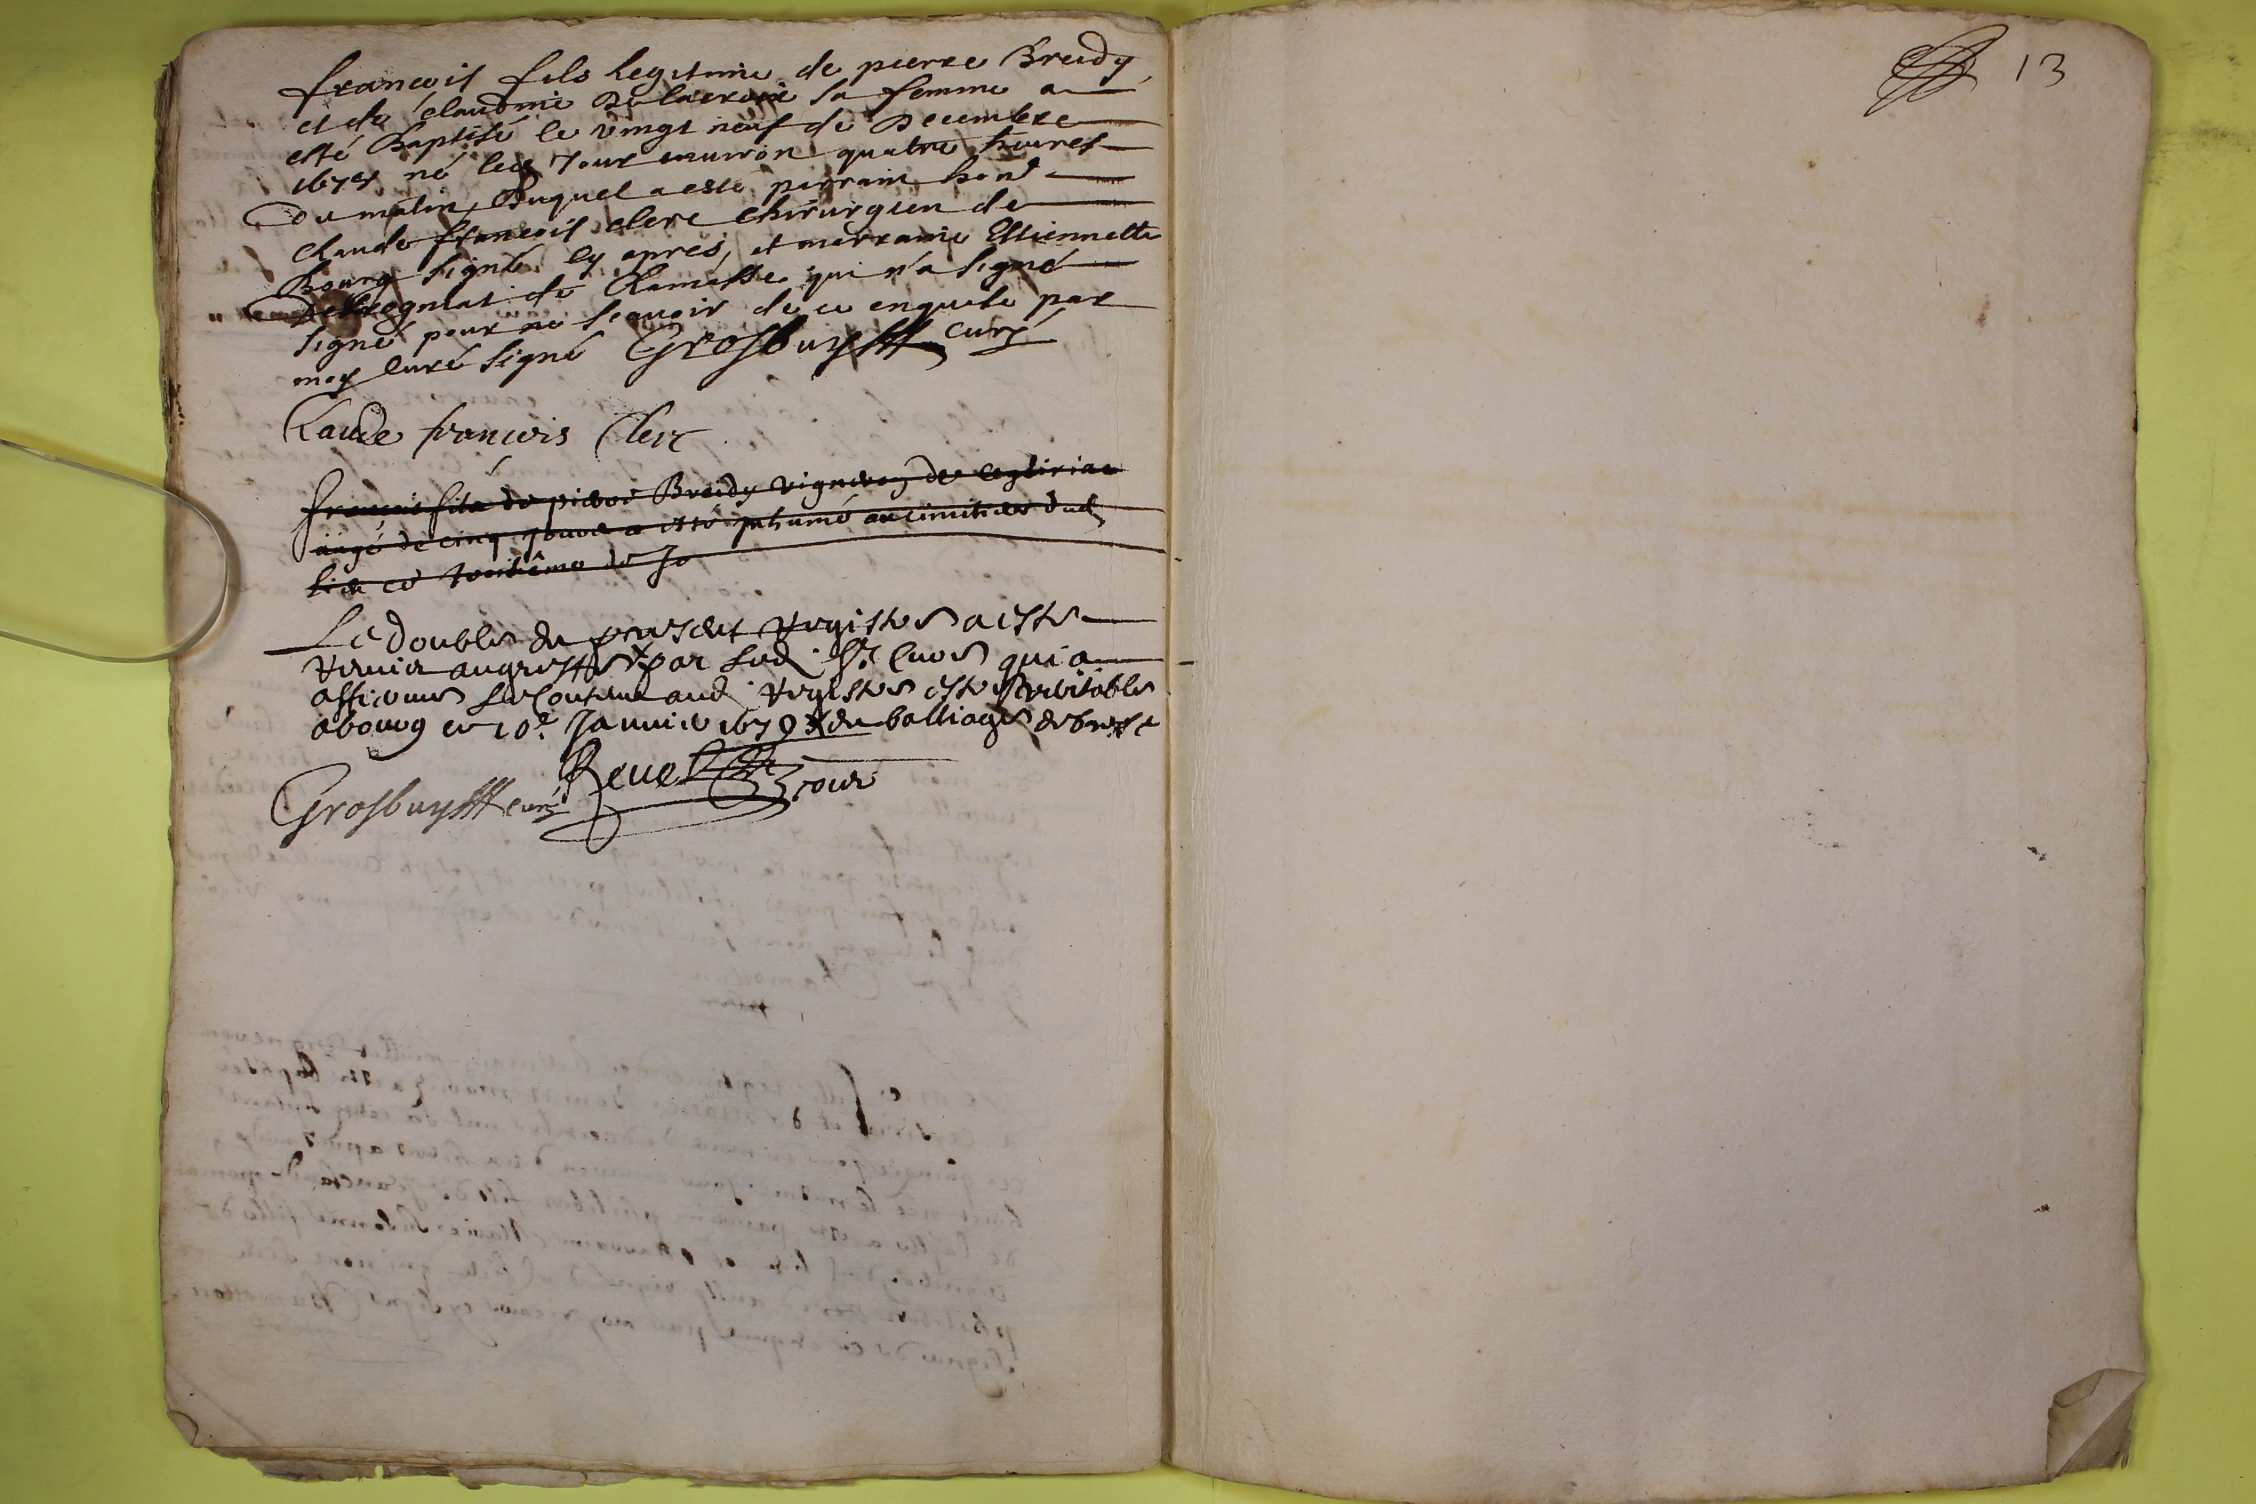 françois fils legitime de pierre Breidy
et de claudine Delacroix sa femme a
esté Baptisé le vingt neuf de Decembre
1678 né led Jour environ quatre heures
Du matin, Duquel a esté parrain hon.
Claude françois clerc chirurgien de
Bourg signé cy apres, et marraine Estiennette
de chamesse qui n'a signé
signé pour ne sçavoir de ce enquise par
moy curé signé Grosbuyst curé
Claude françois Clerc
françois fils de pierre Breidy vigneron de
aagé de cinq jours a esté inhumé au cimitiere dud
lieu ce troisième de Ja
Le double du present registre a esté
remis au greffe x par led. Sr. Curé qui a
affirmé le contenu aud. registre estre veritable
a bourg ce 10e Janvier 1679 x du balliage de bresse
Grosbuyst curé
13